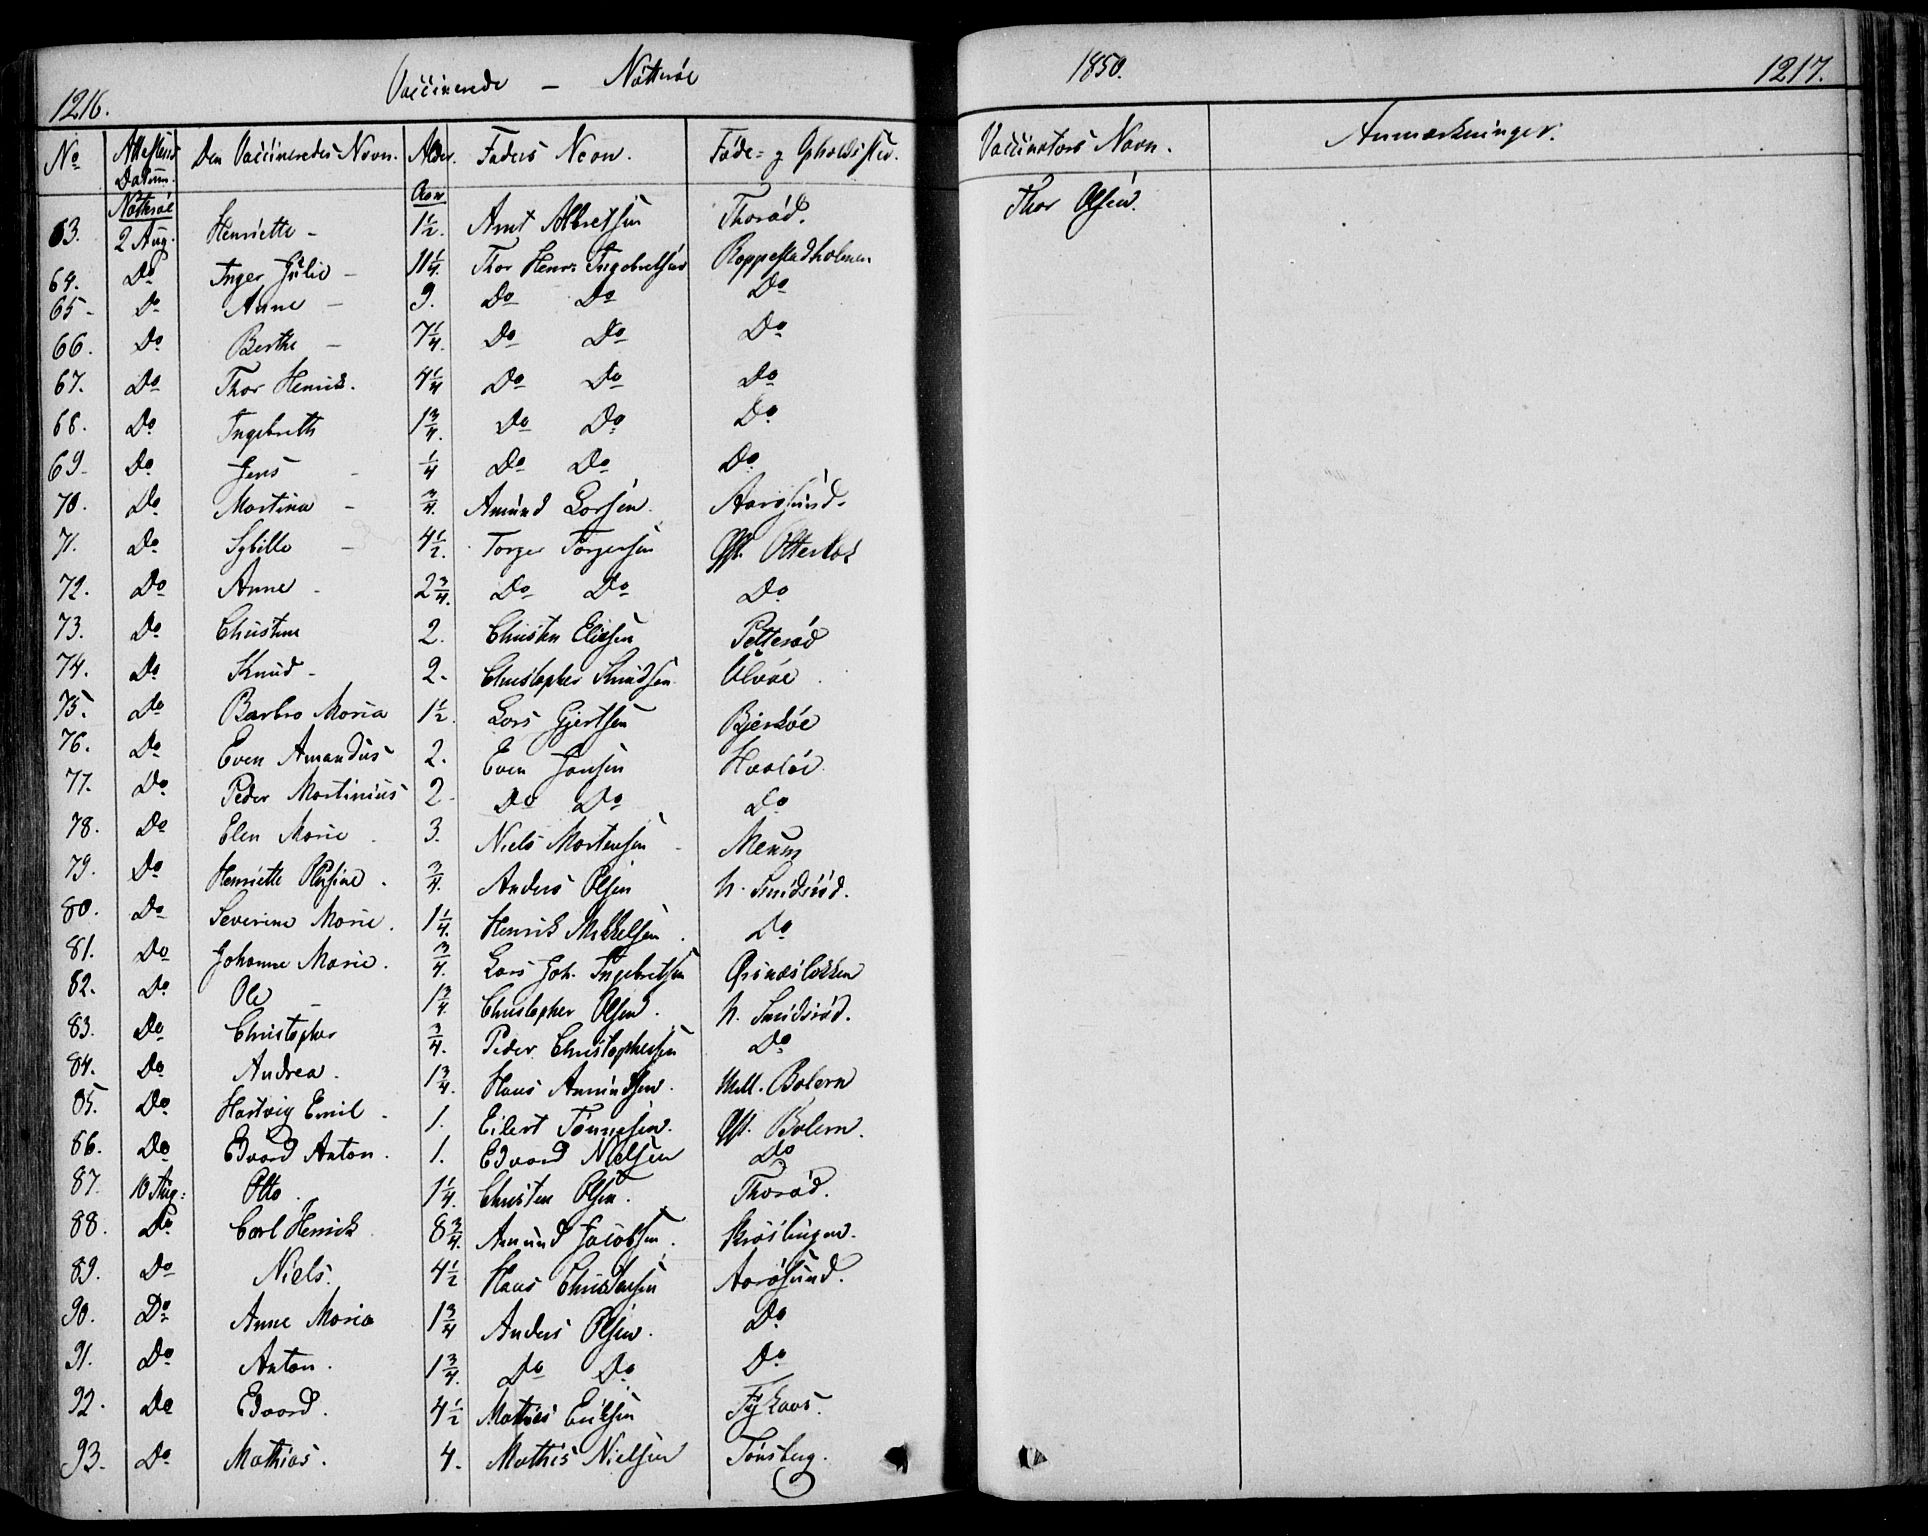 1216. Vaccinerede — Nötteröe
No Attestens Datum. Den Vaccineredes Navn. Alder. Faders Navn. Føde- og Opholdssted.
Nötteröe Aar.
63. 2 Aug. Henriette - 1 1/2. Arnt Albretsen Thoröd.
64. Do Inger Julie - 11 1/4. Thor Henr: Ingebretsen Roppestadholmen
65 - Do Anne - 9. Do Do Do
66. Do Berthe - 7 1/4. Do Do Do
67. Do Thor Henrik. 4 1/4 Do Do Do
68. Do Ingebreth 1 3/4. Do Do Do
69 - Do Jens - 1/4 Do Do Do
70. Do Martina - 3/4. Amund Larsen. Aarösund.
71. Do Sybille - 4 1/2. Torger Torgersen Øst. Otterbek
72. Do Anne - 2 3/4. Do Do Do
73. Do Christine 2. Christen Eliesen Petteröd
74. Do Knud - 2. Christopher Knudsen Ulvöe
75. Do Barbro Maria 1 1/2. Lars Gjertsen Bjerköe
76. Do Even Amandus 2. Even Jansen Haaöe
77. Do Peder Martinius 2 - Do Do Do
78. Do Elen Marie 3. Niels Mortensen - Meum
79. Do Henriette Olufine. 3/4. Anders Olsen N. Smidsröd.
80. Do Severine Marie. 1 1/4. Henrik Mikkelsen. Do
81. Do Johanne Marie. 3/4. Lars Joh. Ingebretsen Ørsnæsløkken
82. Do Ole - 1 3/4. Christopher Olsen. N. Smidsröd.
83. Do Christopher 3/4. Peder Christophersen Do
84. Do Andrea. 1 3/4. Hans Amundsen. Mell. Bolern
85. Do Hartvig Emil - 1. Eilert Tönnesen. Øst. Bolern.
86. Do Edvard Anton. 1. Edvard Nielsen Do
87. 10 Aug: Otto. 1 1/4. Christen Olsen. Thoröd.
88. Do Carl Henrik 8 3/4. Amund Jacobsen. Kröslingen.
89. Do Niels. 4 1/2 Hans Christensen Aarösund.
90. Do Anne Maria 1 3/4 Anders Olsen. Do
91. Do Anton. 1 3/4. Do Do Do
92. Do Edvard. 4 1/2 Mathias Eriksen Tykaas.
93. Do Mathias. 4. Mathis Nielsen Tönsberg.
1850. 1217.
Vaccinators Navn. Anmærkninger.
Thor Olsen.